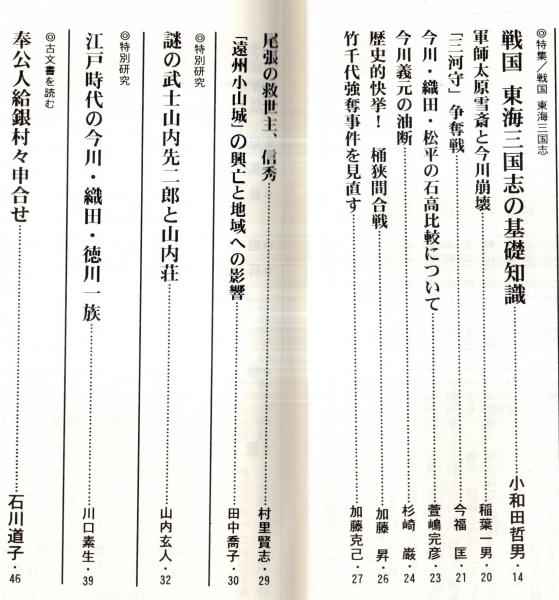 ◎特集／戦国 東海三国志
戦国 東海三国志の基礎知識……小和田哲男・14
軍師太原雪斎と今川崩壊……稲葉一男・20
「三河守」争奪戦……今福 匡・21
今川・織田・松平の石高比較について……萱嶋完彦・23
今川義元の油断……杉崎 巌・24
歴史的快挙！ 桶狭間合戦……加藤 昇・26
竹千代強奪事件を見直す……加藤克己・27
尾張の救世主、信秀……村里賢志・29
「遠州小山城」の興亡と地域への影響……田中喬子・30
◎特別研究
謎の武士山内先二郎と山内荘……山内玄人・32
◎特別研究
江戸時代の今川・織田・徳川一族……川口素生・39
◎古文書を読む
奉公人給銀村々申合せ……石川道子・46